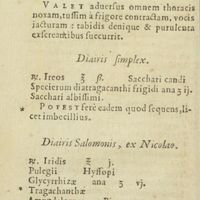 VALET adversus omnem thoracis
noxam, tussim à frigore contractam, vocis
jacturam : tabidis denique & purulenta
exscreantibus succurrit.
Diairis simplex.
℞. Ireos ʒ ß. Sacchari candi
Specierum diatragacanthi frigidi ana ʒ ij.
Sacchari albissimi.
* POTEST fere eadem quod sequens, li-
cet imbecillius.
Diairis Salomonis, ex Nicolao.
℞. Iridis ℥ j.
Pulegii Hyssopi
Glycyrrhizæ ana ʒ vj.
* Tragachanthæ